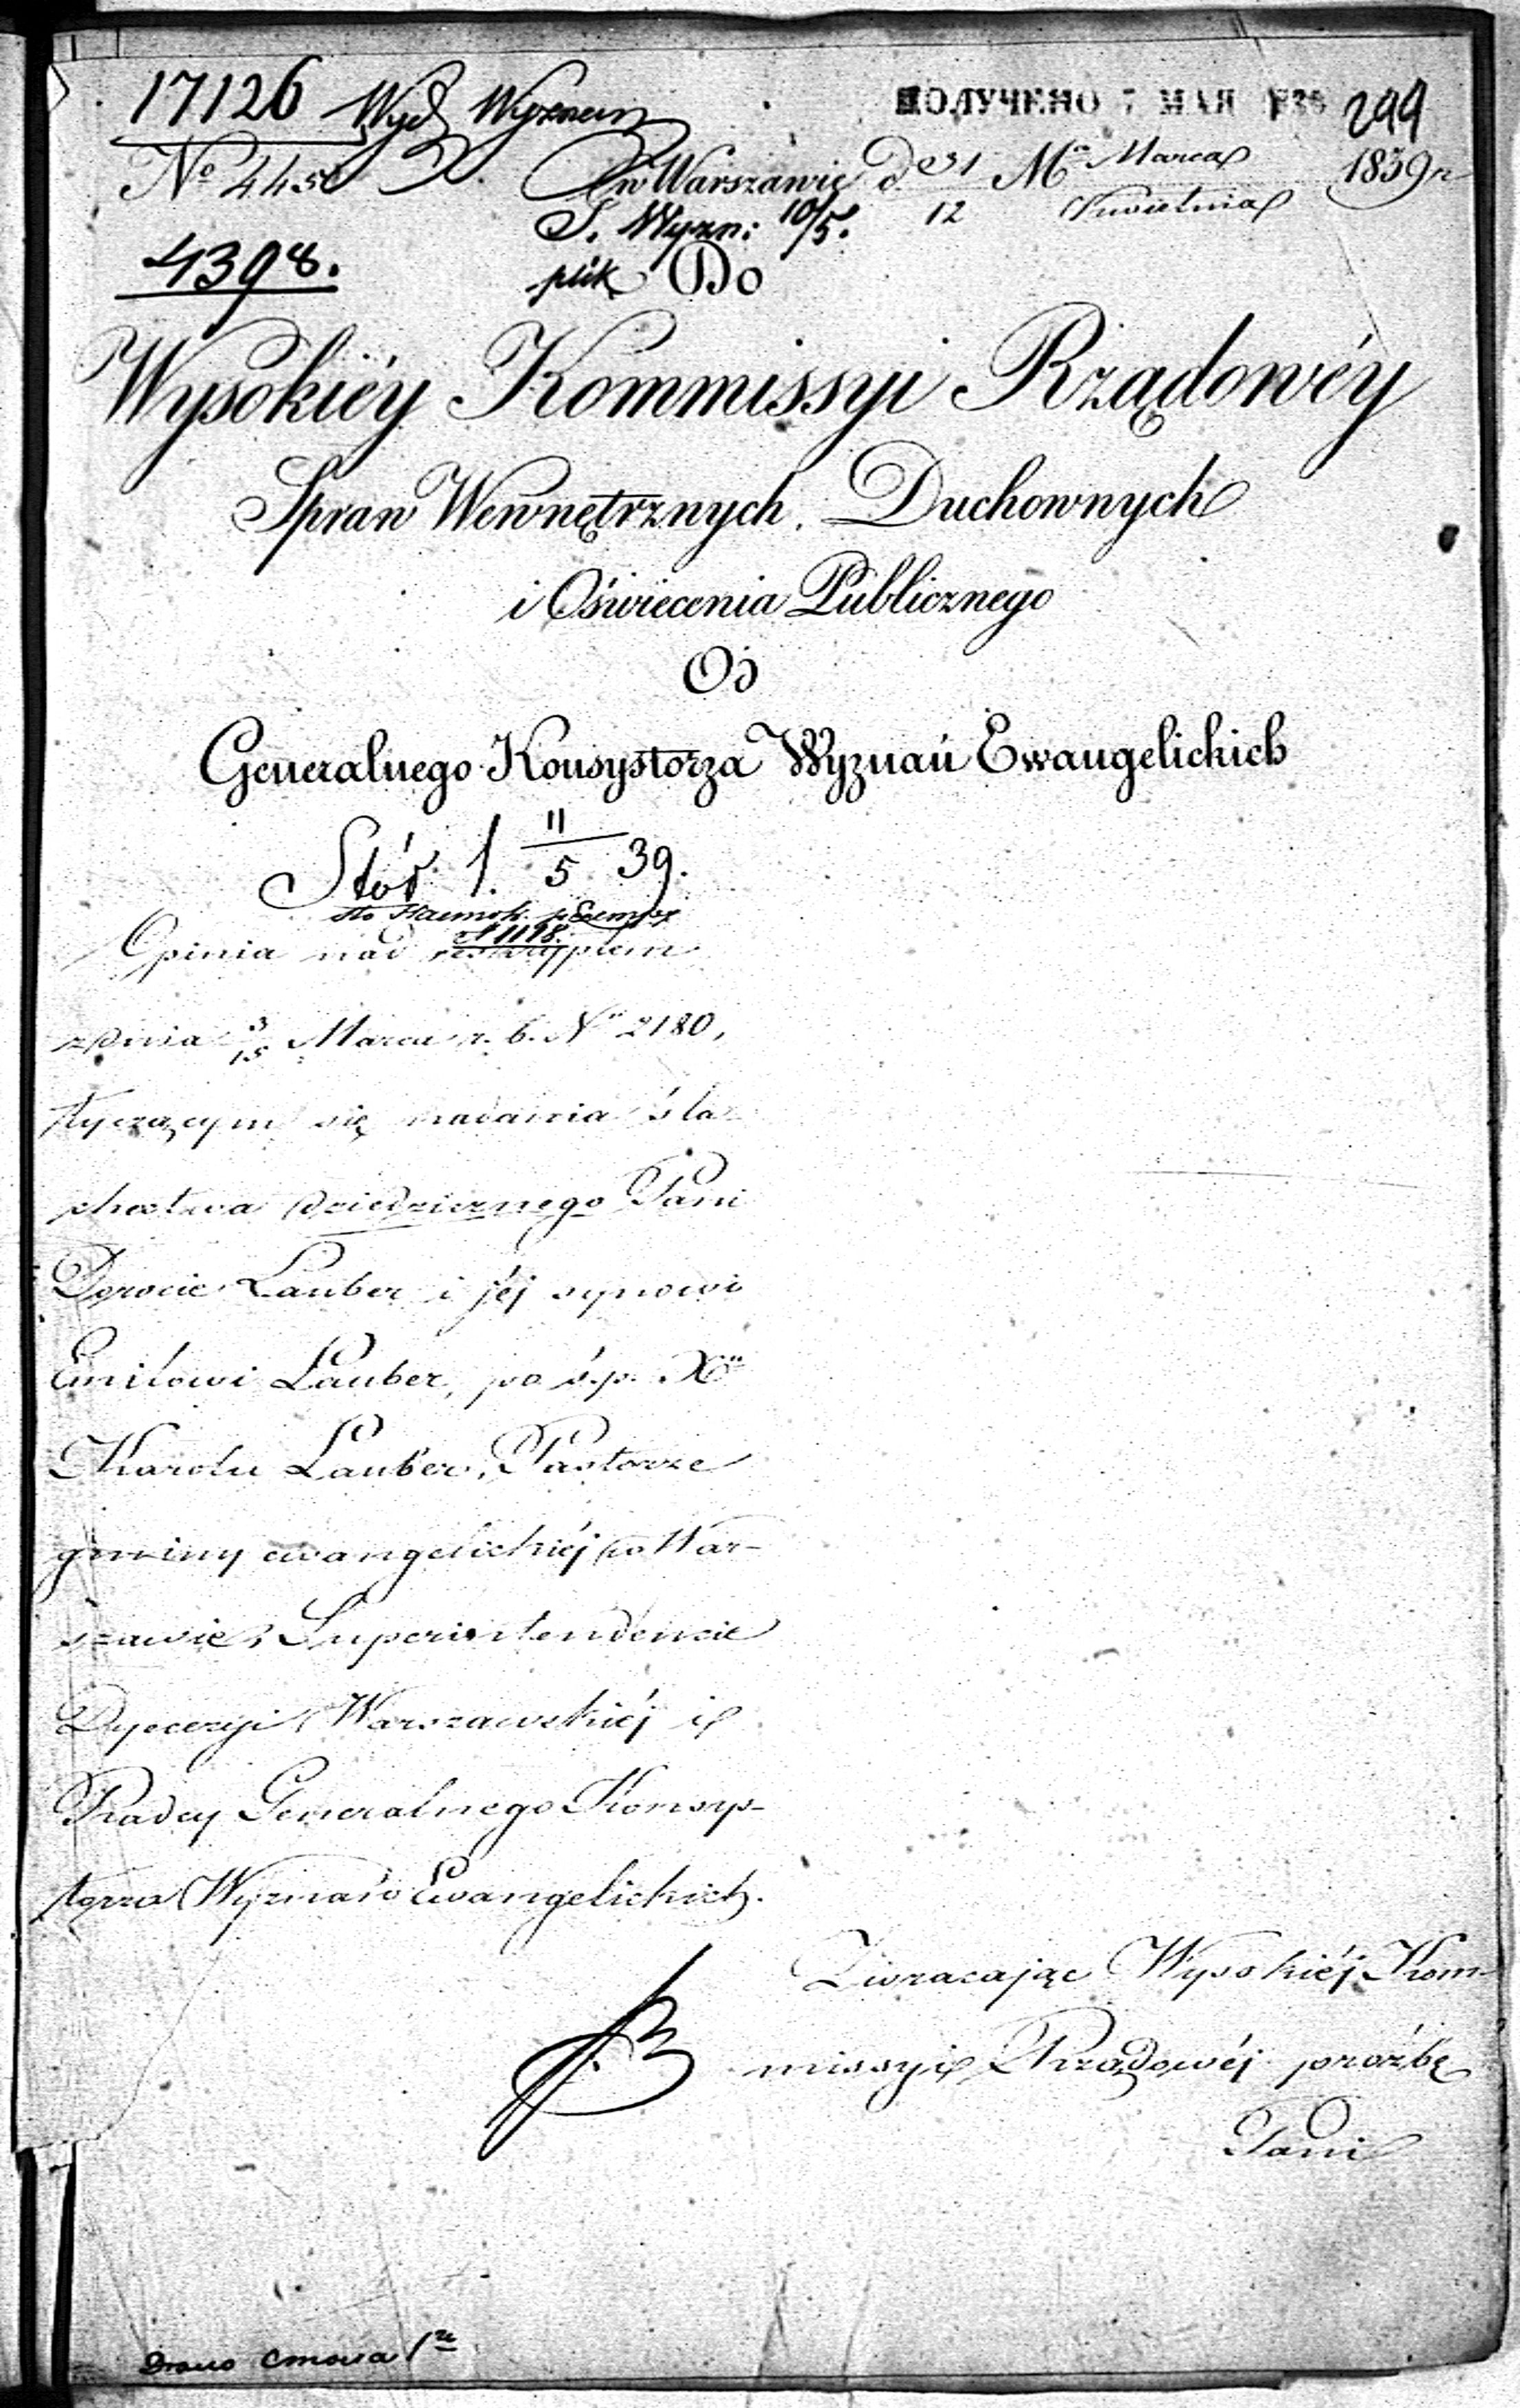 17126 Wyd Wyznan
ПОЛУЧЕНО 7 МАЯ 299
No 445 w Warszawie d. 31 Ma Marca 1839 r
12 Kwietnia
S. Wyzn: 10/5.
4398. plik Do
Wysokiéy Kommissyi Rządowéy
Spraw Wewnętrznych, Duchownych
i Oświecenia Publicznego
Od
Generalnego Konsystorza Wyznań Ewangelickich
11/5 39.
1198.
Opinia nad reskryptem
z dnia 3/15 Marca r. b. No 2180,
tyczącym się nadania śla-
chectwa dziedzicznego Pani
Dorocie Lauber i jéj synowi
Emilowi Lauber, po ś.p. Xu
Karolu Lauber, Pastorze
gminy ewangelickiéj w War-
szawie, Superintendencie
Dyecezyi Warszawskiéj i
Radcy Generalnego Konsy-
storza Wyznań Ewangelickich.
Zwracając Wysokiéj Kom-
missyi Rządowéj prośbę
Pani